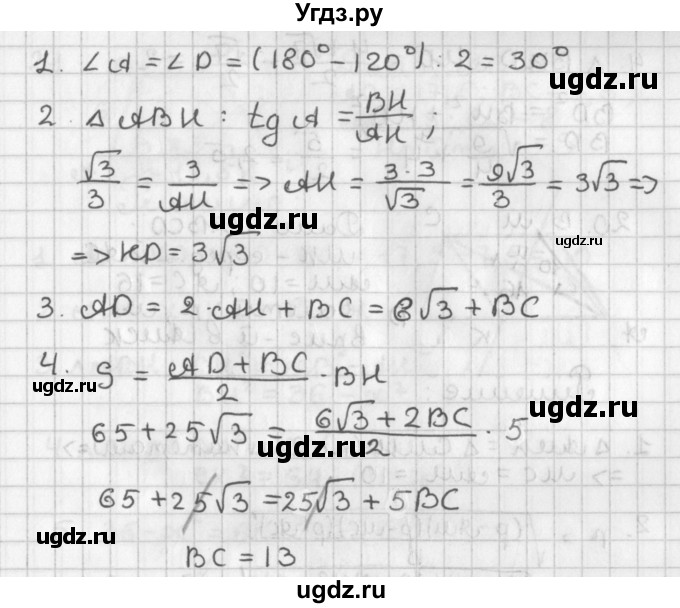 Угдз.ру
1. ∠A = ∠D = (180° − 120°) : 2 = 30°
©gdz.ru
2. △ ABH : tg A = BH/AH ;
√3/3 = 3/AH => AH = 3·3/√3 = 9√3/3 = 3√3 =>
ugdz.ru
ugdz.ru
=> KD = 3√3
3. AD = 2·AH + BC = 6√3 + BC
ugdz.ru
ugdz.ru
4. S = AD + BC/2 · BH
65 + 25√3 = 6√3 + 2BC/2 · 5
ugdz.ru
65 + 25√3 = 25√3 + 5BC
ugdz.ru
ugdz.ru
BC = 13
ugdz.ru
ugdz.ru